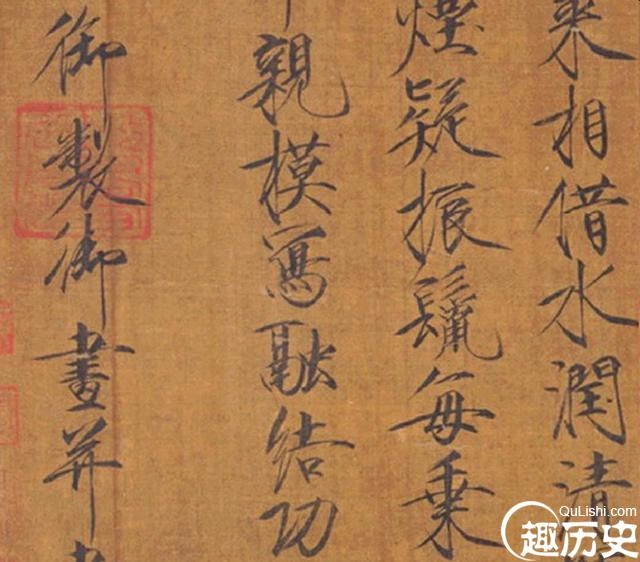 來相借水潤清
煙疑振鬣每乘
親模寫融結功
御製御畫并
趣历史
QuLishi.com